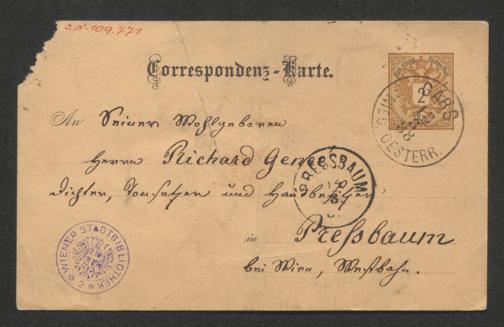 J.N. 109.771
Correspondenz-Karte.
An Seiner Wohlgeboren
Herrn Richard Genée
Dichter, Tonsetzer und
in Preßbaum
bei Wien, Westbahn.
2
GARS
OESTERR.
PRESSBAUM
WIENER STADTBIBLIOTHEK